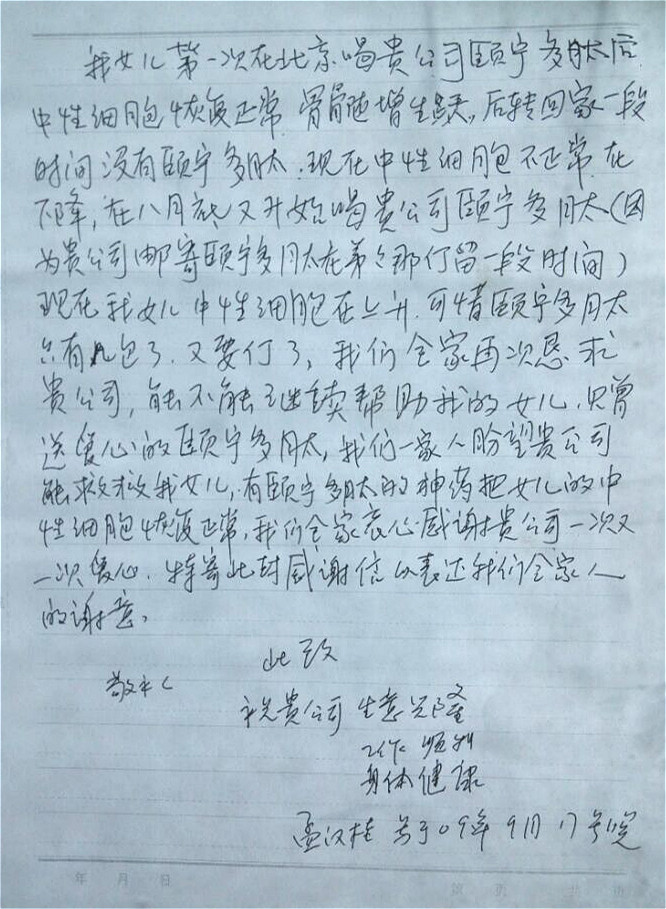 我女儿第一次在北京喝贵公司颐宁多肽后
中性细胞恢复正常 骨髓增生跃, 后转回家一段
时间没有颐宁多肽. 现在中性细胞不正常 在
下降, 在八月底又开始喝贵公司颐宁多肽(因
为贵公司邮寄颐宁多肽在弟弟那停留一段时间)
现在我女儿中性细胞在上升. 可惜颐宁多肽
只有几包了. 又要停了, 我们全家再次恳求
贵公司, 能不能继续帮助我的女儿. 只曾
送爱心的颐宁多肽, 我们一家人盼望贵公司
能救救我女儿, 有颐宁多肽的神药把女儿的中
性细胞恢复正常, 我们全家衷心感谢贵公司一次又
一次爱心. 特寄此封感谢信以表达我们全家人
的谢意。
此致
敬礼
祝贵公司 生意兴隆
工作顺利
身体健康
孟汉桂 书于09年9月17号晚
年 月 日